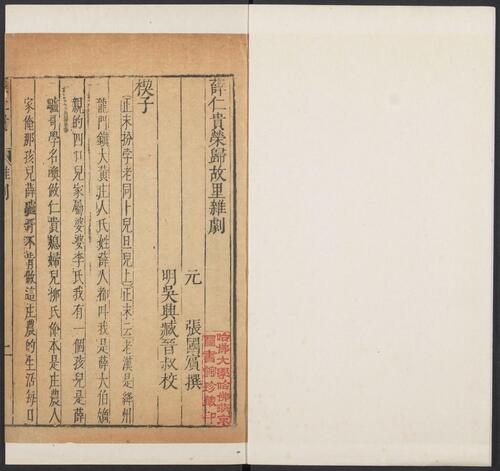 薛仁貴榮歸故里雜劇
元 張國賓撰
明吳興臧晉叔校
楔子
正末扮孛老同卜兒旦兒上正末云老漢是絳州
龍門鎮大黃莊人氏姓薛人都叫我是薛大伯嫡
親的四口兒家屬婆婆李氏我有一個孩兒是薛
驢哥學名喚做仁貴媳婦兒柳氏俺本是庄農人
家俺那孩兒薛驢哥不肯做這庄農的生活每日
雜劇
一
哈佛大學哈佛燕京
圖書館珍藏印